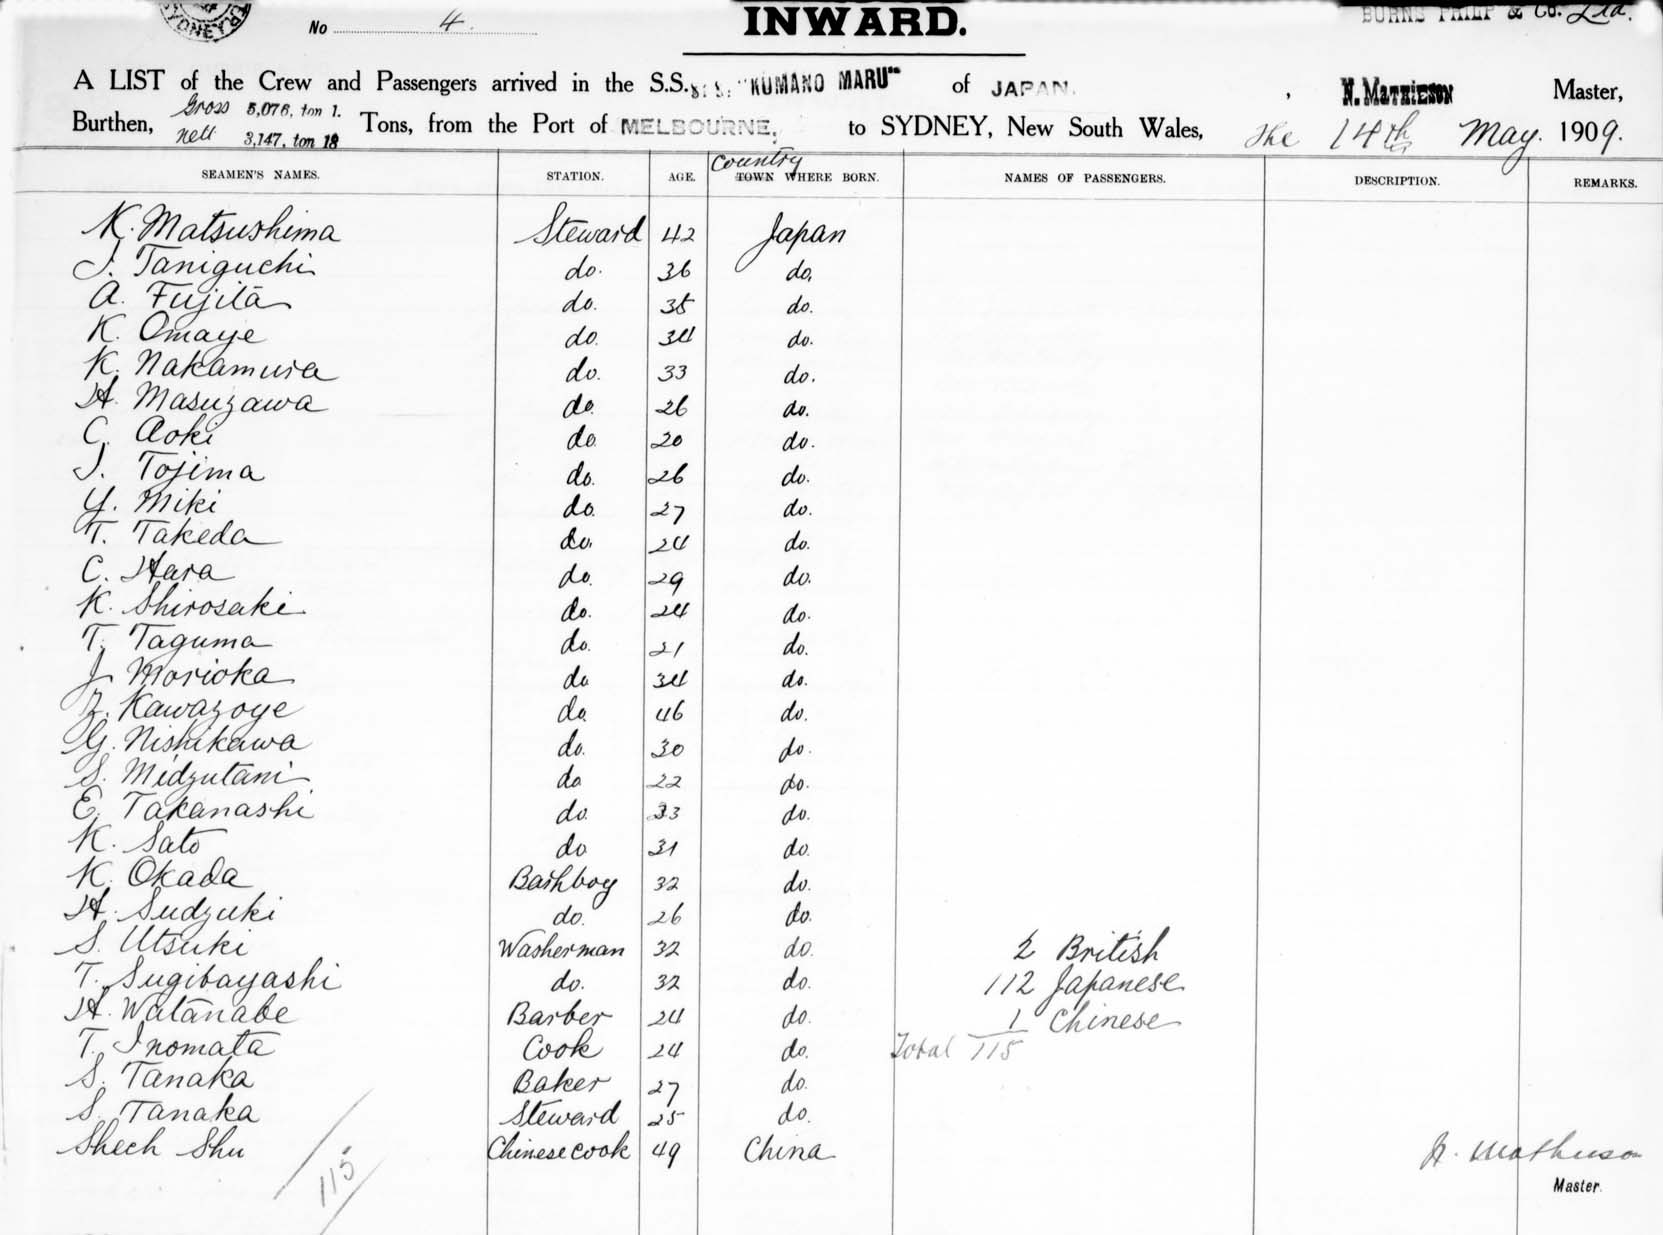 SYDNEY
No 4.
INWARD.
BURNS PHILP & Co. Ltd.
A LIST of the Crew and Passengers arrived in the S.S. S. S. "KUMANO MARU" of JAPAN. , N. MATHIESON Master,
Burthen, Gross 5,076, ton 1. Nett 3,147, ton 18 Tons, from the Port of MELBOURNE, to SYDNEY, New South Wales, the 14th May. 1909.
SEAMEN'S NAMES. STATION. AGE. Country TOWN WHERE BORN. NAMES OF PASSENGERS. DESCRIPTION. REMARKS.
K. Matsushima Steward 42 Japan
J. Taniguchi do. 36 do.
A. Fujita do. 35 do.
K. Omaye do. 34 do.
K. Nakamura do. 33 do.
H. Masuzawa do. 26 do.
C. Aoki do. 20 do.
J. Tojima do. 26 do.
Y. Miki do. 27 do.
T. Takeda do. 24 do.
C. Hara do. 29 do.
K. Shirosaki do. 24 do.
T. Taguma do. 21 do.
J. Morioka do 34 do.
Z. Kawazoye do. 46 do.
G. Nishikawa do. 30 do.
S. Midzutani do 22 do.
E. Takanashi do. 33 do.
K. Sato do 31 do.
K. Okada Bathboy 32 do.
H. Sudzuki do. 26 do.
S. Utsuki Washerman 32 do. 2 British
T. Sugibayashi do. 32 do. 112 Japanese
H. Watanabe Barber 24 do. 1 Chinese
T. Inomata Cook 24 do. Total 115
S. Tanaka Baker 27 do.
S. Tanaka Steward 25 do.
Shech Shu Chinese cook 49 China
115
N. Mathieson
Master.